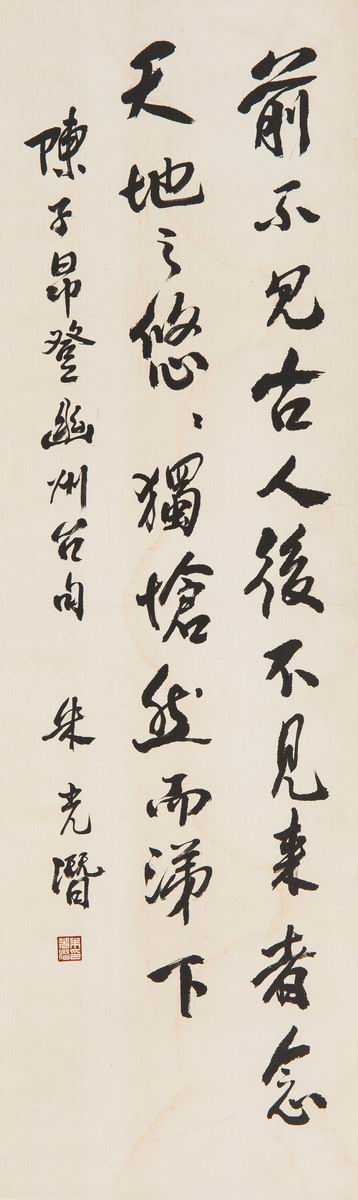 前不見古人後不見来者念
天地之悠〻獨愴然而涕下
陳子昂登幽州台句 朱光潛